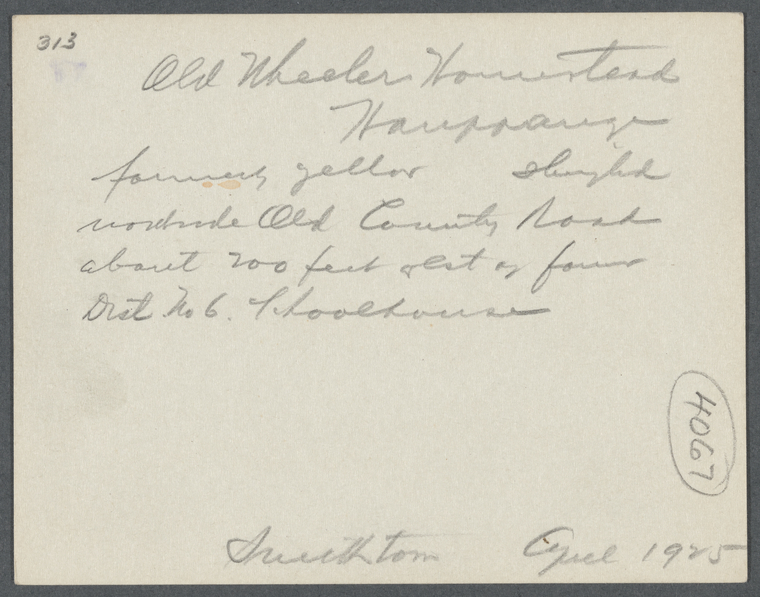 313
Old Wheeler Homestead
Hauppauge
formerly yellow shingled
northside Old County Road
about 200 feet west of former
Dist No 6. Schoolhouse
4067
Smithtown April 1925